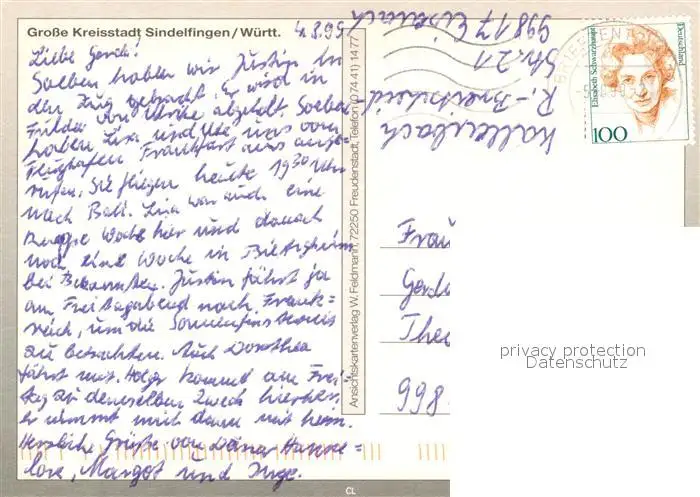 Große Kreisstadt Sindelfingen/Württ.
4.8.99
Liebe Gerda!
Soeben haben wir Justin in
den Zug gebracht. Er wird in
Fulda von Utsche abgeholt. Soeben
haben Lisa und Ute uns vom
Flughafen Frankfurt aus ange-
rufen, Sie fliegen heute 19 30 Uhr
nach Bali. Lisa war auch eine
knappe Woche hier und danach
noch eine Woche in Bietigheim
bei Bekannten. Justin fährt ja
am Freitagabend nach Frank=
reich, um die Sonnenfinsternis
zu betrachten. Auch Dorothea
fährt mit. Holger kommt am Frei=
tag zu demselben Zweck hierher,
er nimmt mich dann mit heim.
Herzliche Grüße von Deiner Hanne=
lore, Margot und Inge.
Ansichtskartenverlag W. Feldmann, 72250 Freudenstadt, Telefon (0 74 41) 14 77
Kallenbach
R.-Breitscheid
Str. 21
99817 Eisenach
BRIEFZENTRUM
Elisabeth Schwarzhaupt
Deutschland
100
Frau
Gerda
Theo
998
privacy protection
Datenschutz
CL